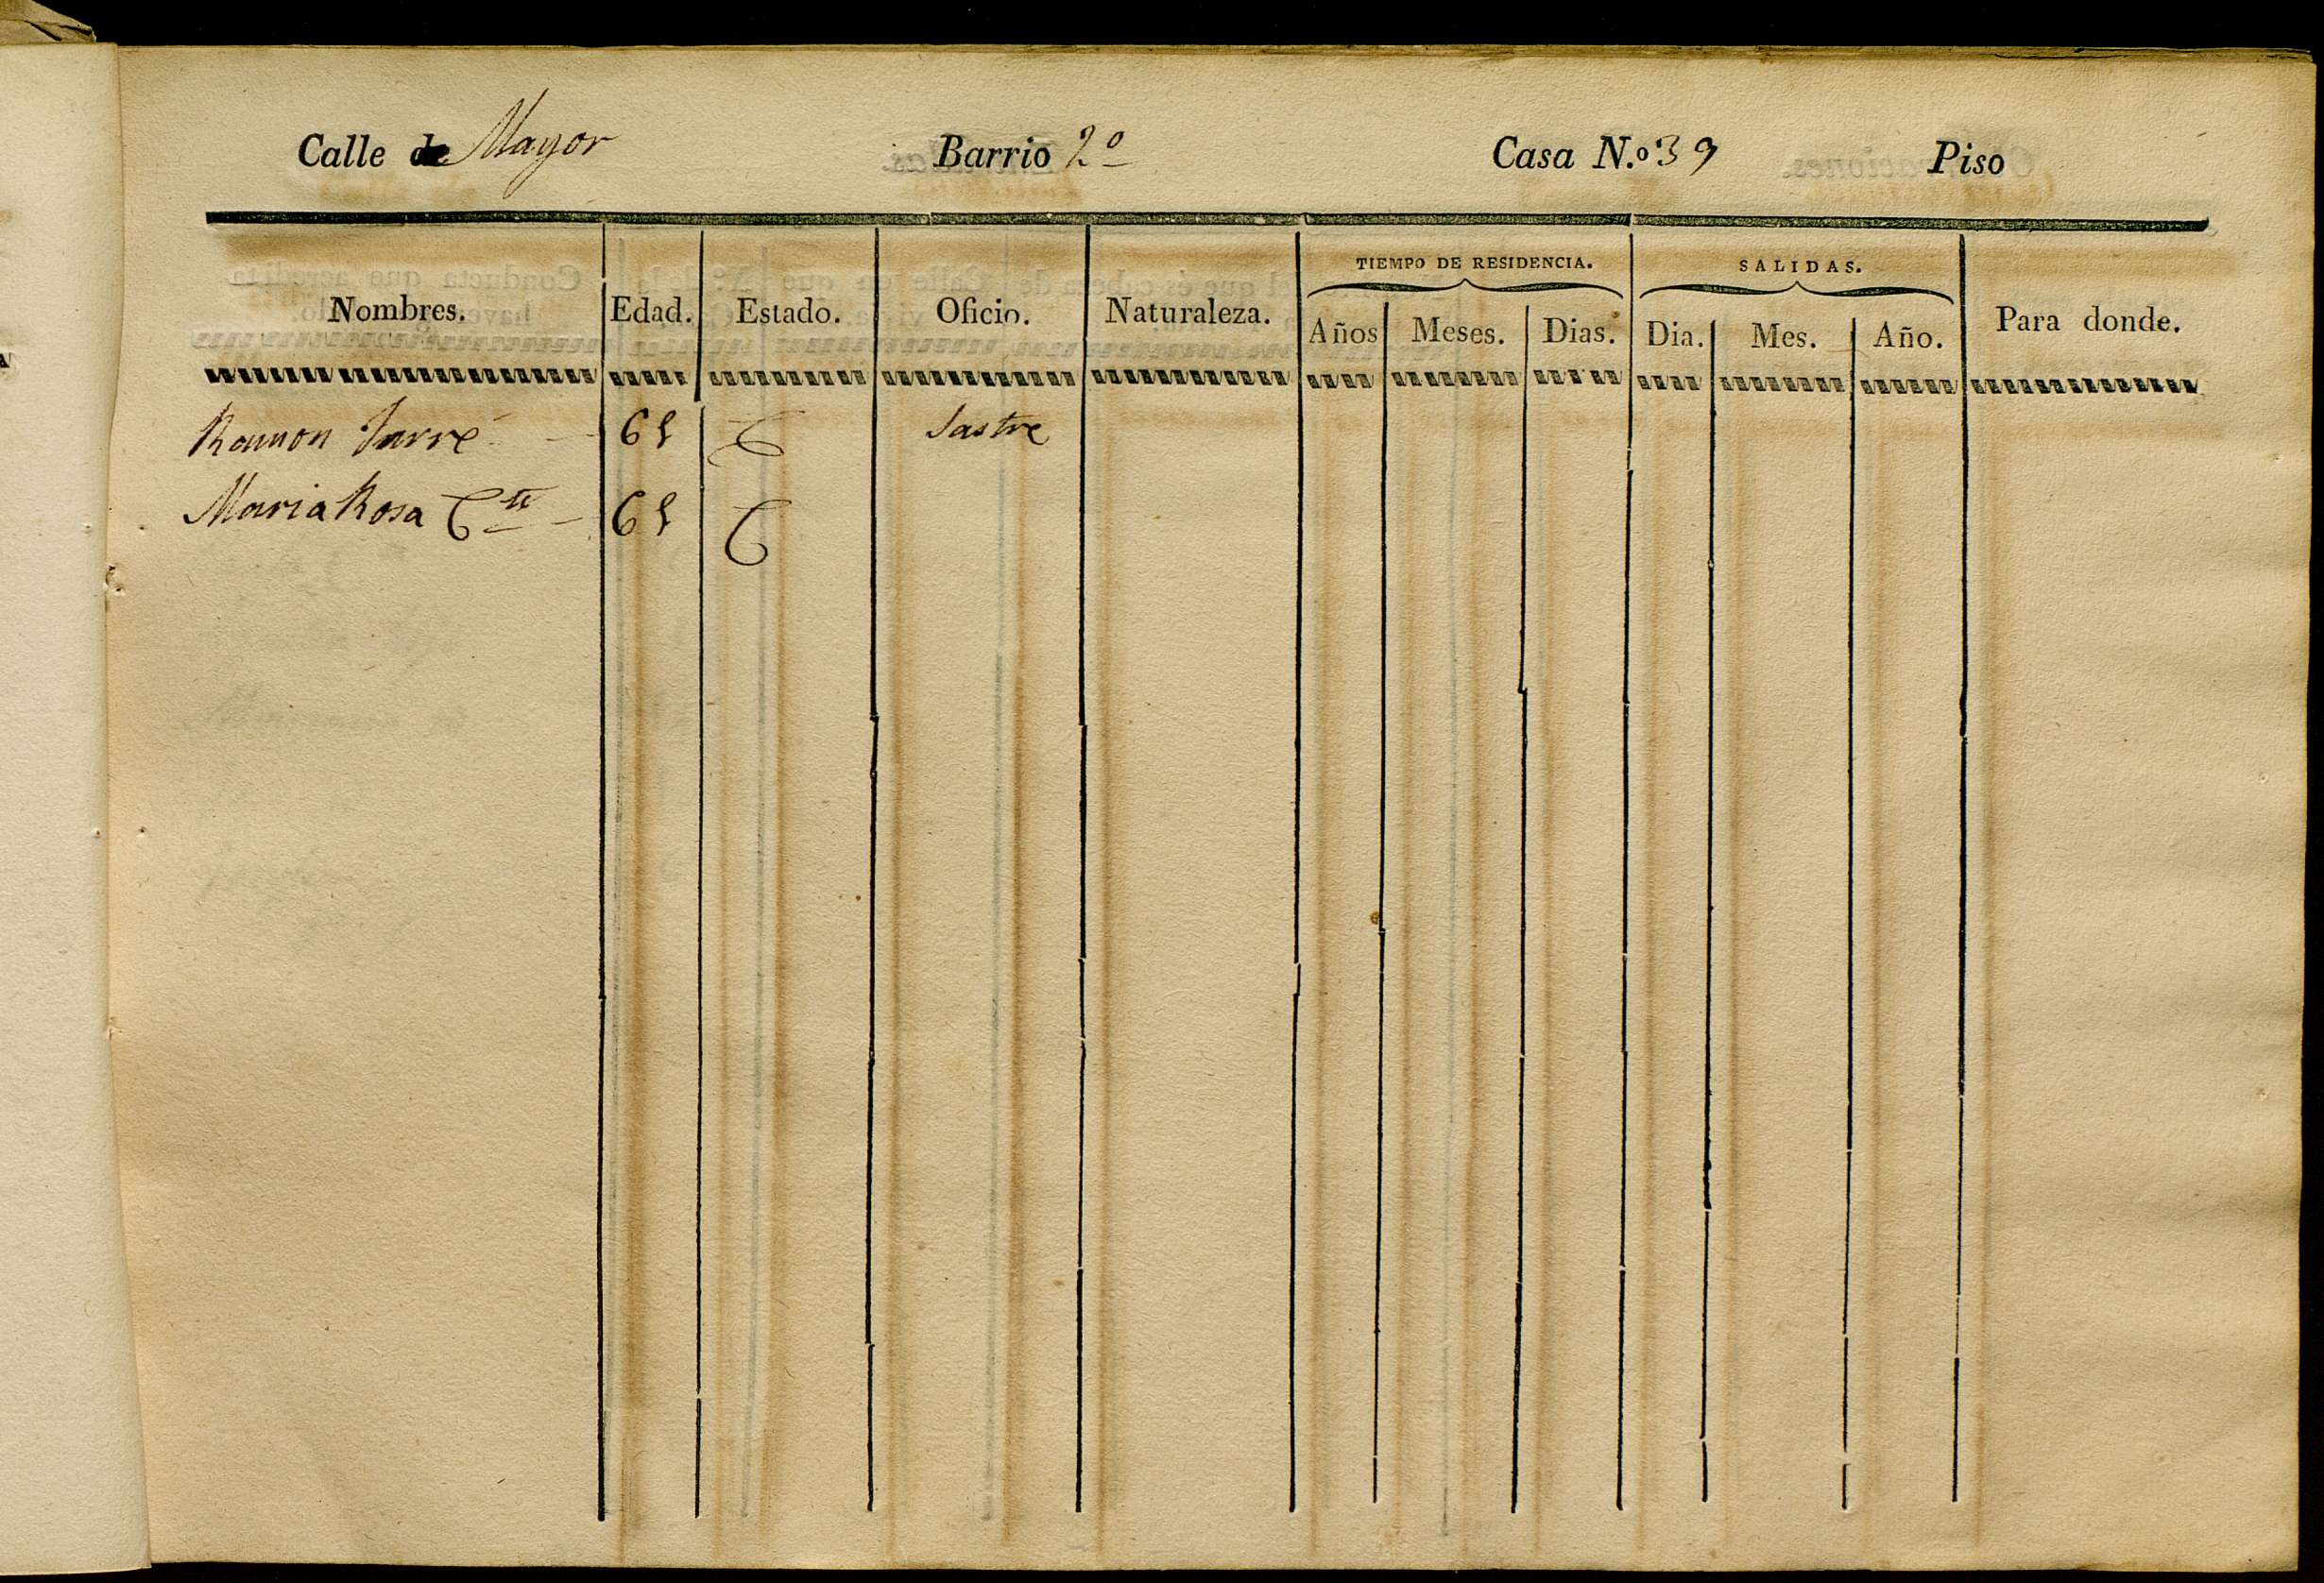 Calle de Mayor Barrio 2º Casa N.º 39 Piso
TIEMPO DE RESIDENCIA. SALIDAS.
Nombres. Edad. Estado. Oficio. Naturaleza. Años Meses. Dias. Dia. Mes. Año. Para donde.
Ramon Jarré 65 C Sastre
Maria Rosa C 65 C